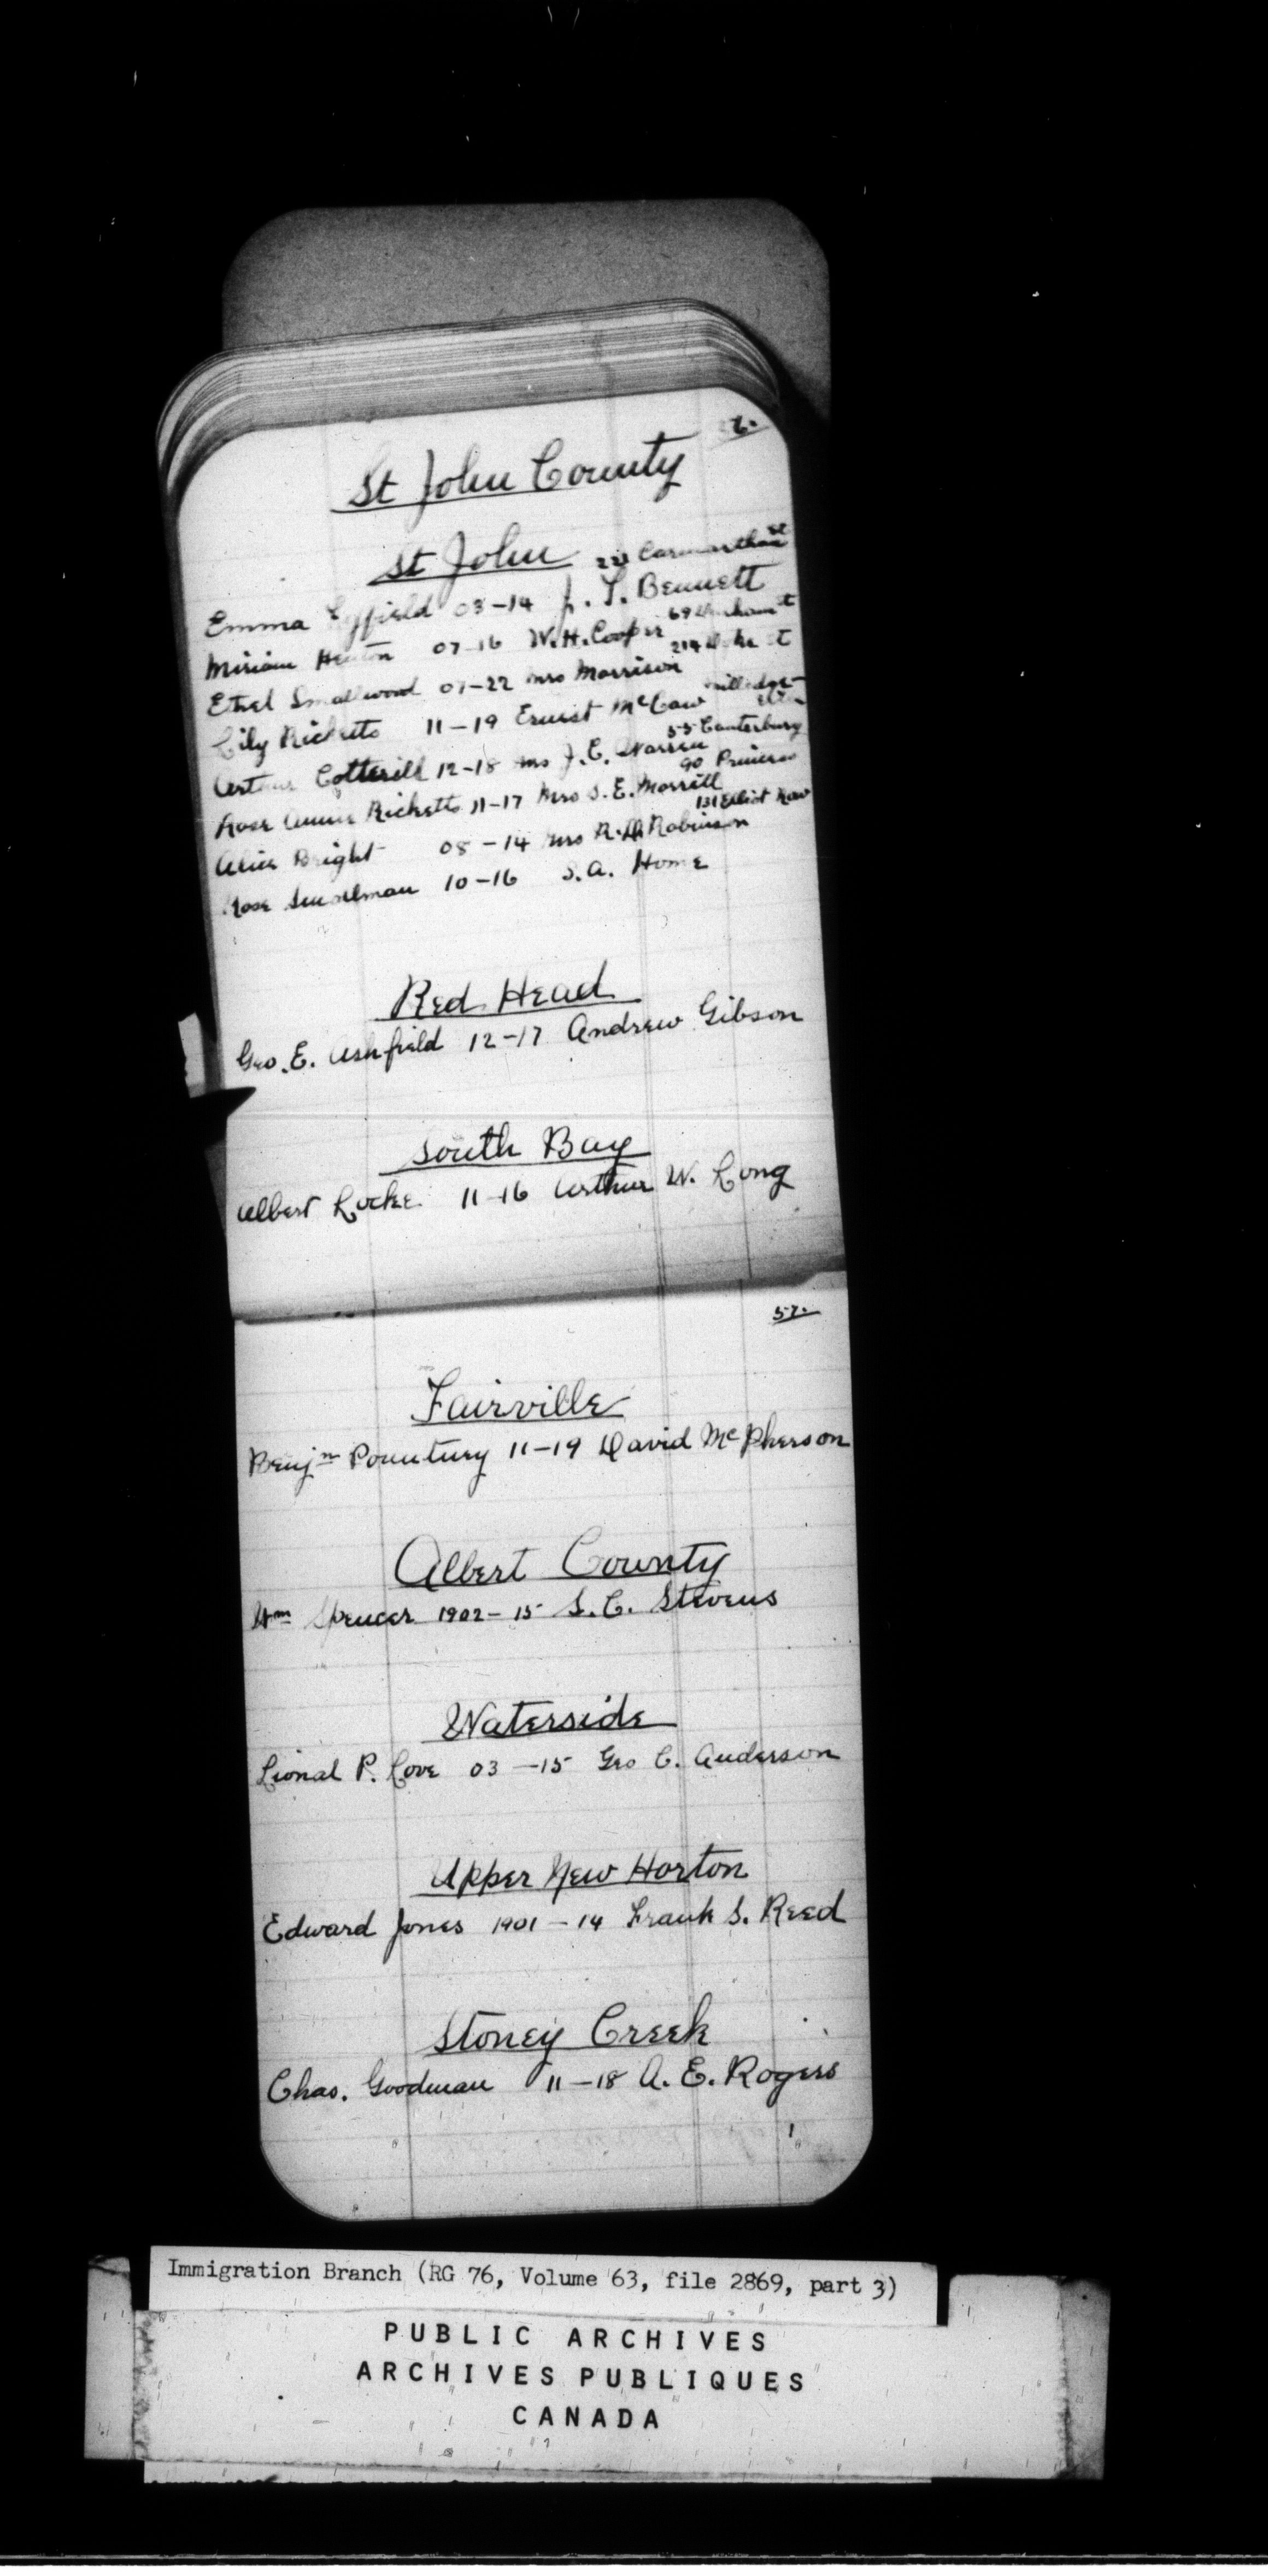 St John County
St John 221 Carmarthen St
Emma 03-14 J. T. Bennett
Miriam Heaton 07-16 W. H. Cooper 69
Ethel Smallwood 07-22 Mrs Morrison 214 Duke St
Lily Ricketts 11-19 Ernest McCaw Milledge
Arthur Cotterill 12-18 Mrs J. E. Warren 55 Canterbury
Rose Annie Ricketts 11-17 Mrs S. E. Morrell 90 Princess
Alice Bright 08-14 Mrs R. D. Robinson 131 Elliot Row
Rose 10-16 S. A. Home
Red Head
Geo. E. Ashfield 12-17 Andrew Gibson
South Bay
Albert Locke 11-16 Arthur W. Long
57.
Fairville
Benjn Pountney 11-19 David McPherson
Albert County
Wm Spencer 1902-15 S. C. Stevens
Waterside
Lional P. Love 03-15 Geo C. Anderson
Upper New Horton
Edward Jones 1901-14 Frank S. Reed
Stoney Creek
Chas. Goodman 11-18 A. E. Rogers
Immigration Branch (RG 76, Volume 63, file 2869, part 3)
PUBLIC ARCHIVES
ARCHIVES PUBLIQUES
CANADA